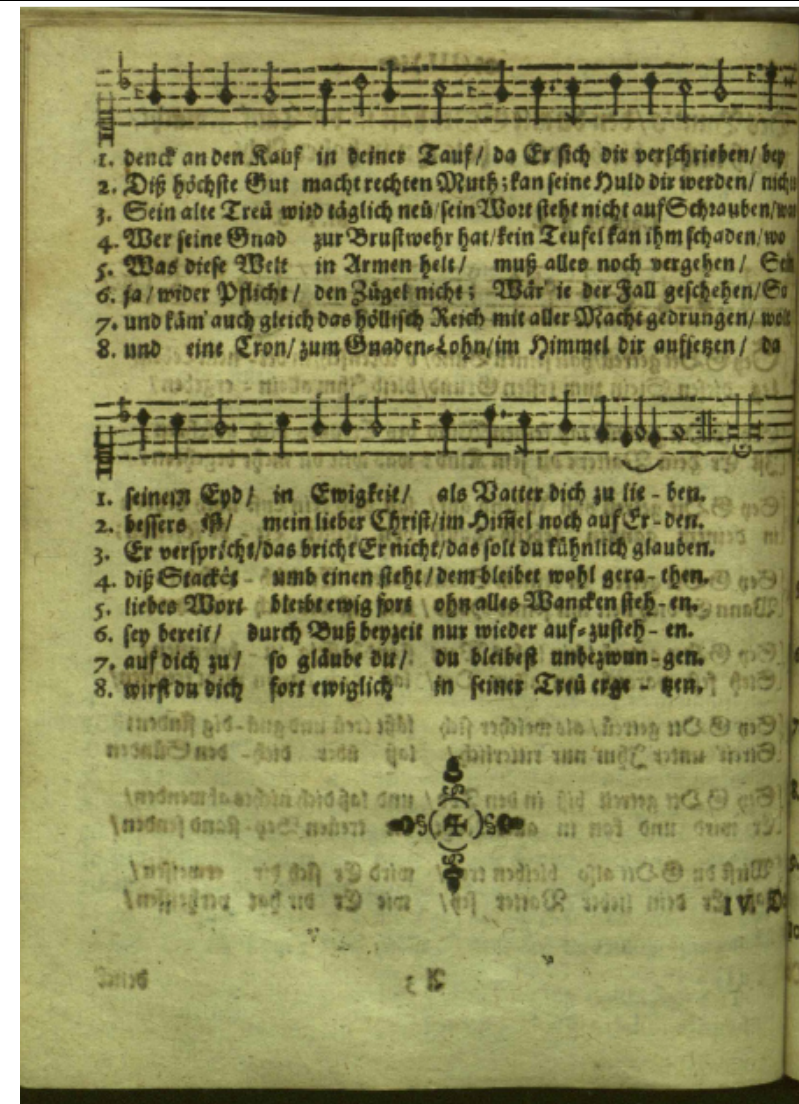 1. denck an den Kauf in deiner Tauf/ da Er sich dir verschrieben/ bey
2. Diß höchste Gut macht rechten Muth; kan seine Huld dir werden/
3. Sein alte Treü wird täglich neü/ sein Wort steht nicht auf Schrauben/
4. Wer seine Gnad zur Brustwehr hat/ kein Teufel kan ihm schaden/ wo
5. Was diese Welt in Armen helt/ muß alles noch vergehen/ Sein
6. ja/ wider Pflicht/ den Zügel nicht; Wär' ie der Fall geschehen/ So
7. und käm' auch gleich das höllisch Reich mit aller Macht gedrungen/
8. und eine Cron/ zum Gnaden-Lohn/ im Himmel dir aufsetzen/ da
1. seinem Eyd/ in Ewigkeit/ als Vatter dich zu lie - ben.
2. bessers ist/ mein lieber Christ/ im Him̃el noch auf Er - den.
3. Er verspricht/ das bricht Er nicht/ das solt du kühnlich glauben.
4. diß Stacket umb einen steht/ dem bleibet wohl gera - then.
5. liebes Wort bleibt ewig fort ohn alles Wancken steh - en.
6. sey bereit/ durch Buß beyzeit nur wieder auf-zusteh - en.
7. auf dich zu/ so gläube du/ du bleibest unbezwun - gen.
8. wirst du dich fort ewiglich in seiner Treü erge - tzen.
IV.